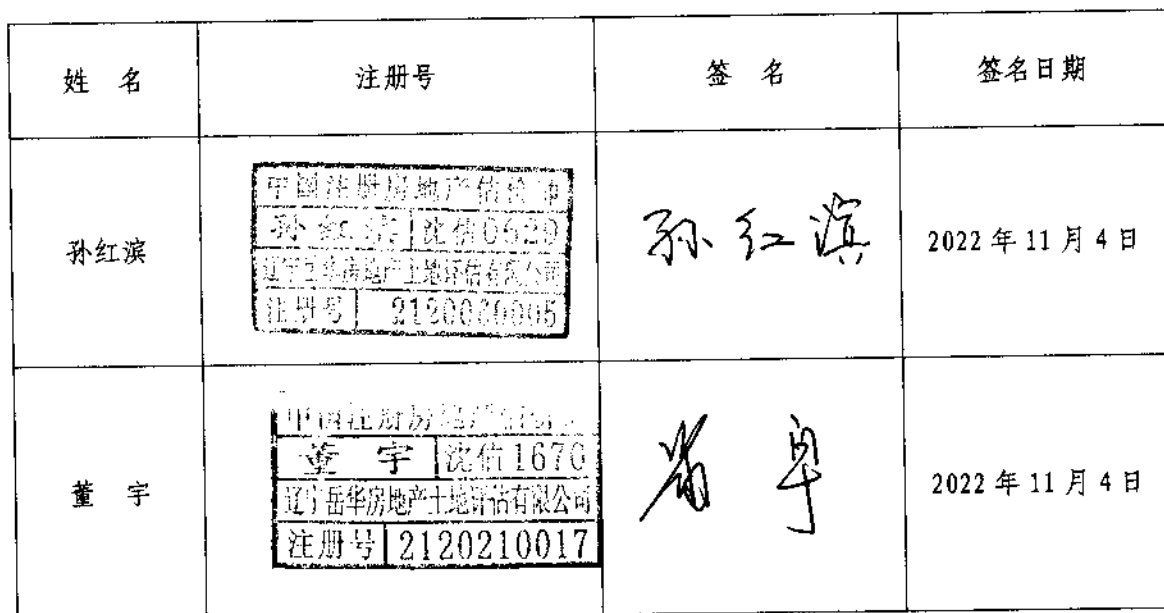 姓 名 注册号 签 名 签名日期
孙红滨
中国注册房地产估价师
孙红滨 沈估0629
辽宁岳华房地产土地评估有限公司
注册号
孙红滨
2022年11月4日
董 宇
中国注册房地产估价师
董 宇 沈估1670
辽宁岳华房地产土地评估有限公司
注册号 2120210017
董宇
2022年11月4日